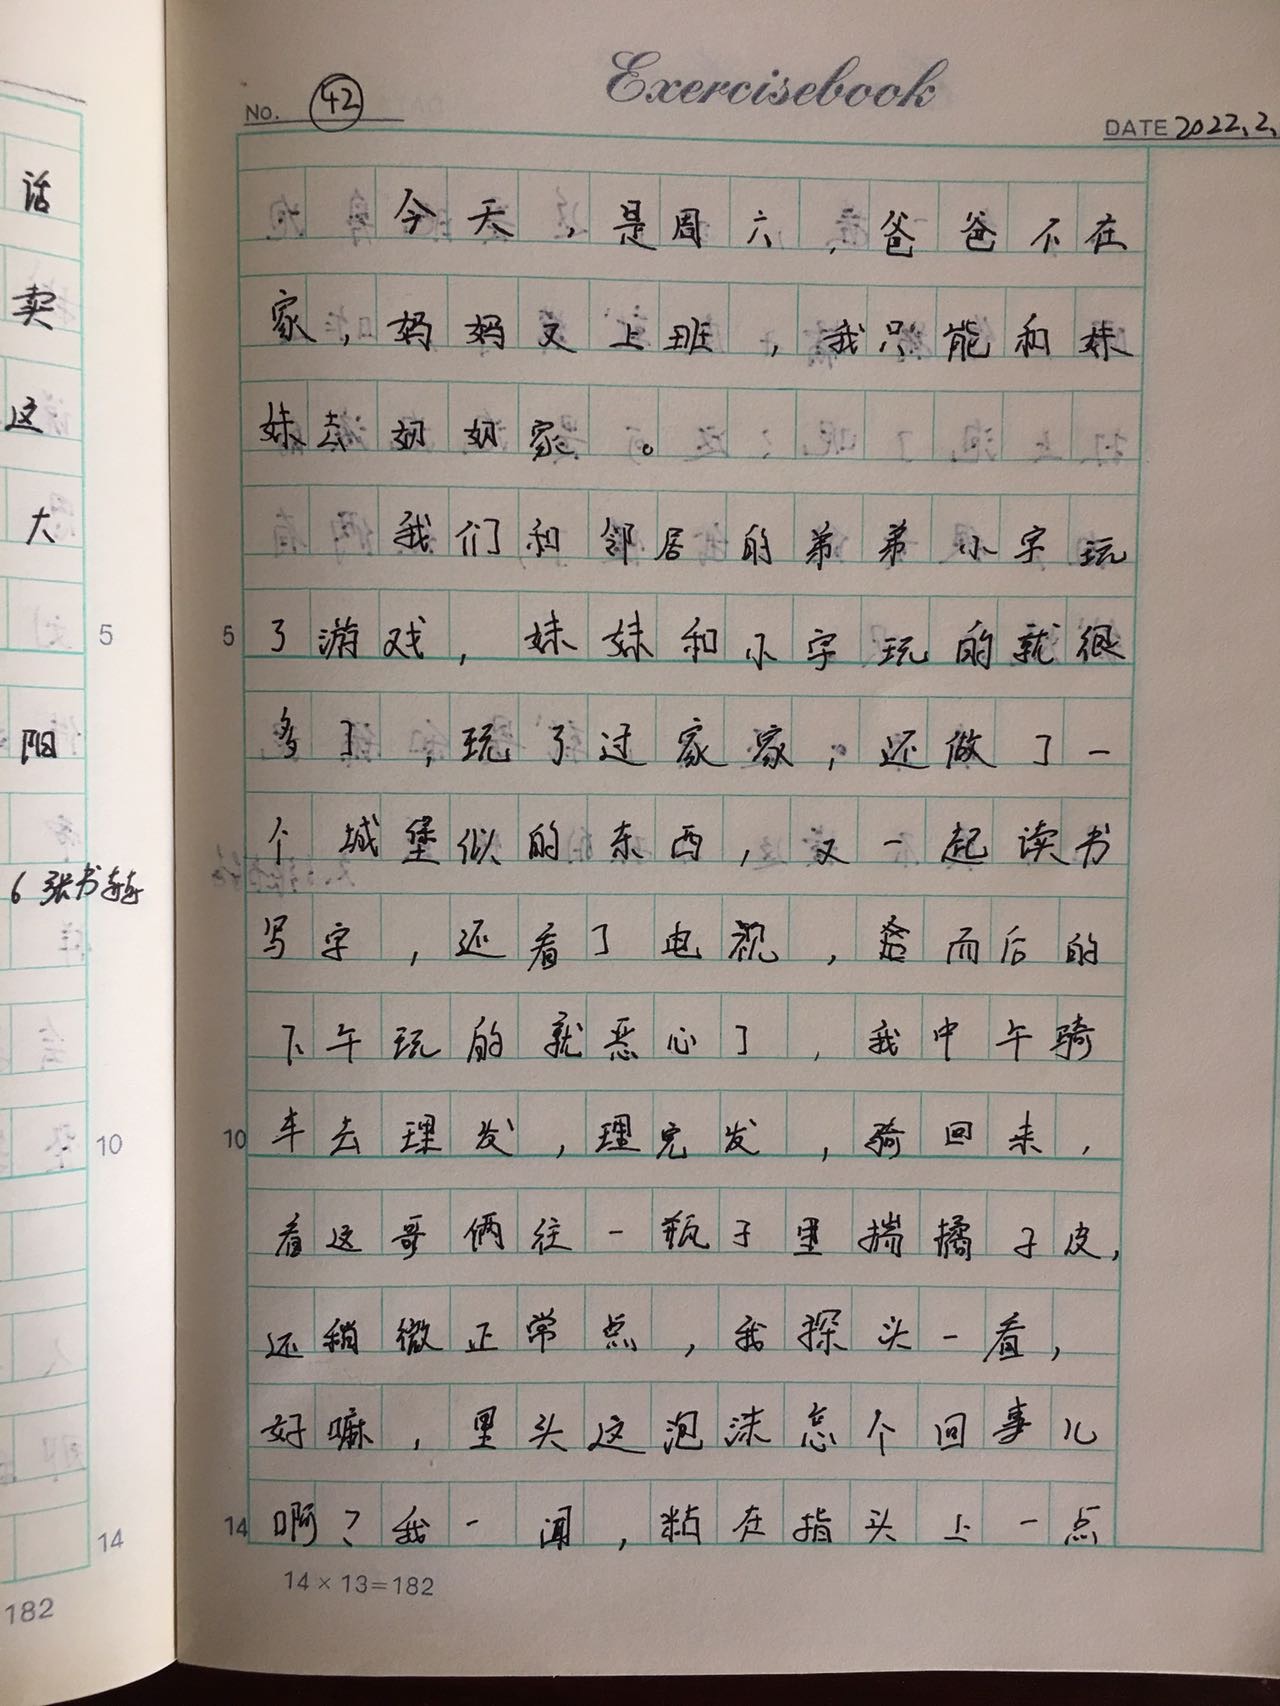 Exercisebook
NO. 42
DATE 2022.2.
今天,是周六,爸爸不在
家,妈妈又上班,我只能和妹
妹去奶奶家。
我们和邻居的弟弟小字玩
5 了游戏,妹妹和小字玩的就很
多了,玩了过家家,还做了一
个城堡似的东西,又一起读书
写字,还看了电视,然而后的
下午玩的就恶心了,我中午骑
10 车去理发,理完发,骑回来,
看这哥俩往一瓶子里揣橘子皮,
还稍微正常点,我探头一看,
好嘛,里头这泡沫怎个回事儿
14 啊?我一闻,粘在指头上一点
14×13=182
话
卖
这
大
5
阳
6 张书
10
14
182